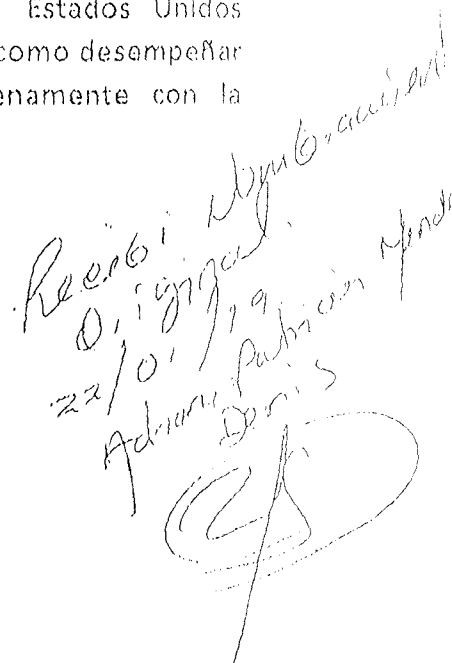 Estados Unidos
como desempeñar
enamente con la
Recibí Nombramiento
Original.
22/01/19
Adriana Patricia Mend
Denis